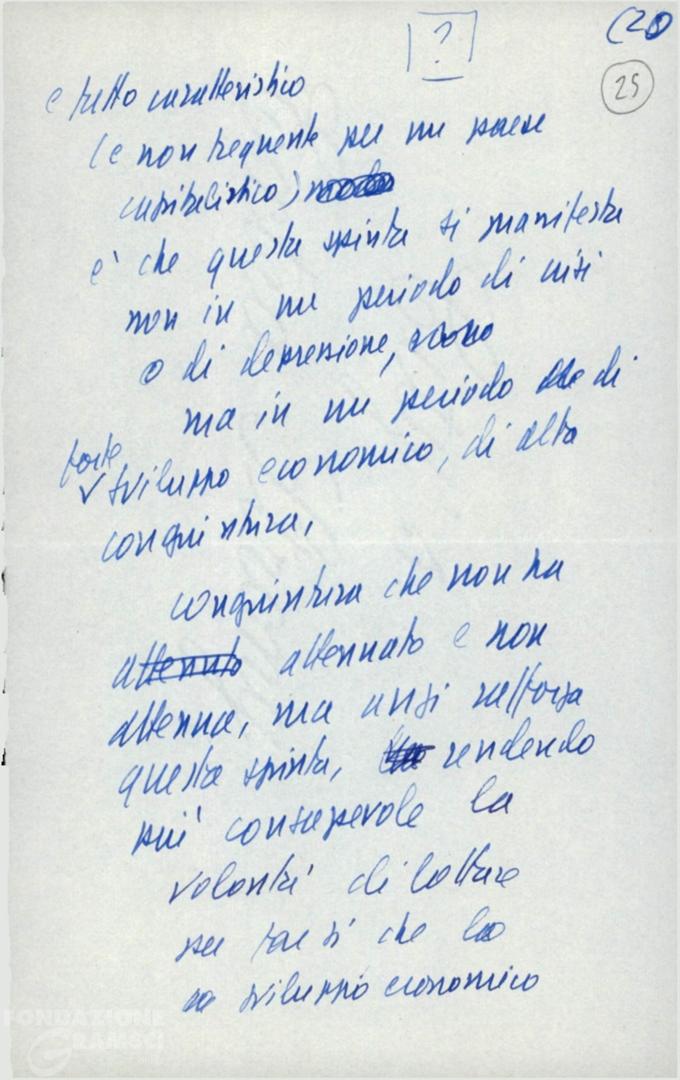 ?
(20
25
e tutto caratteristico
(e non frequente per un paese
capitalistico)
e' che questa spinta si manifesta
non in un periodo di crisi
o di depressione,
ma in un periodo di
forte
sviluppo economico, di alta
congiuntura,
congiuntura che non ha
attenuto attenuato e non
attenua, ma anzi rafforza
questa spinta, rendendo
più consapevole la
volontà di lottare
per far sì che lo
sviluppo economico
FONDAZIONE
GRAMSCI